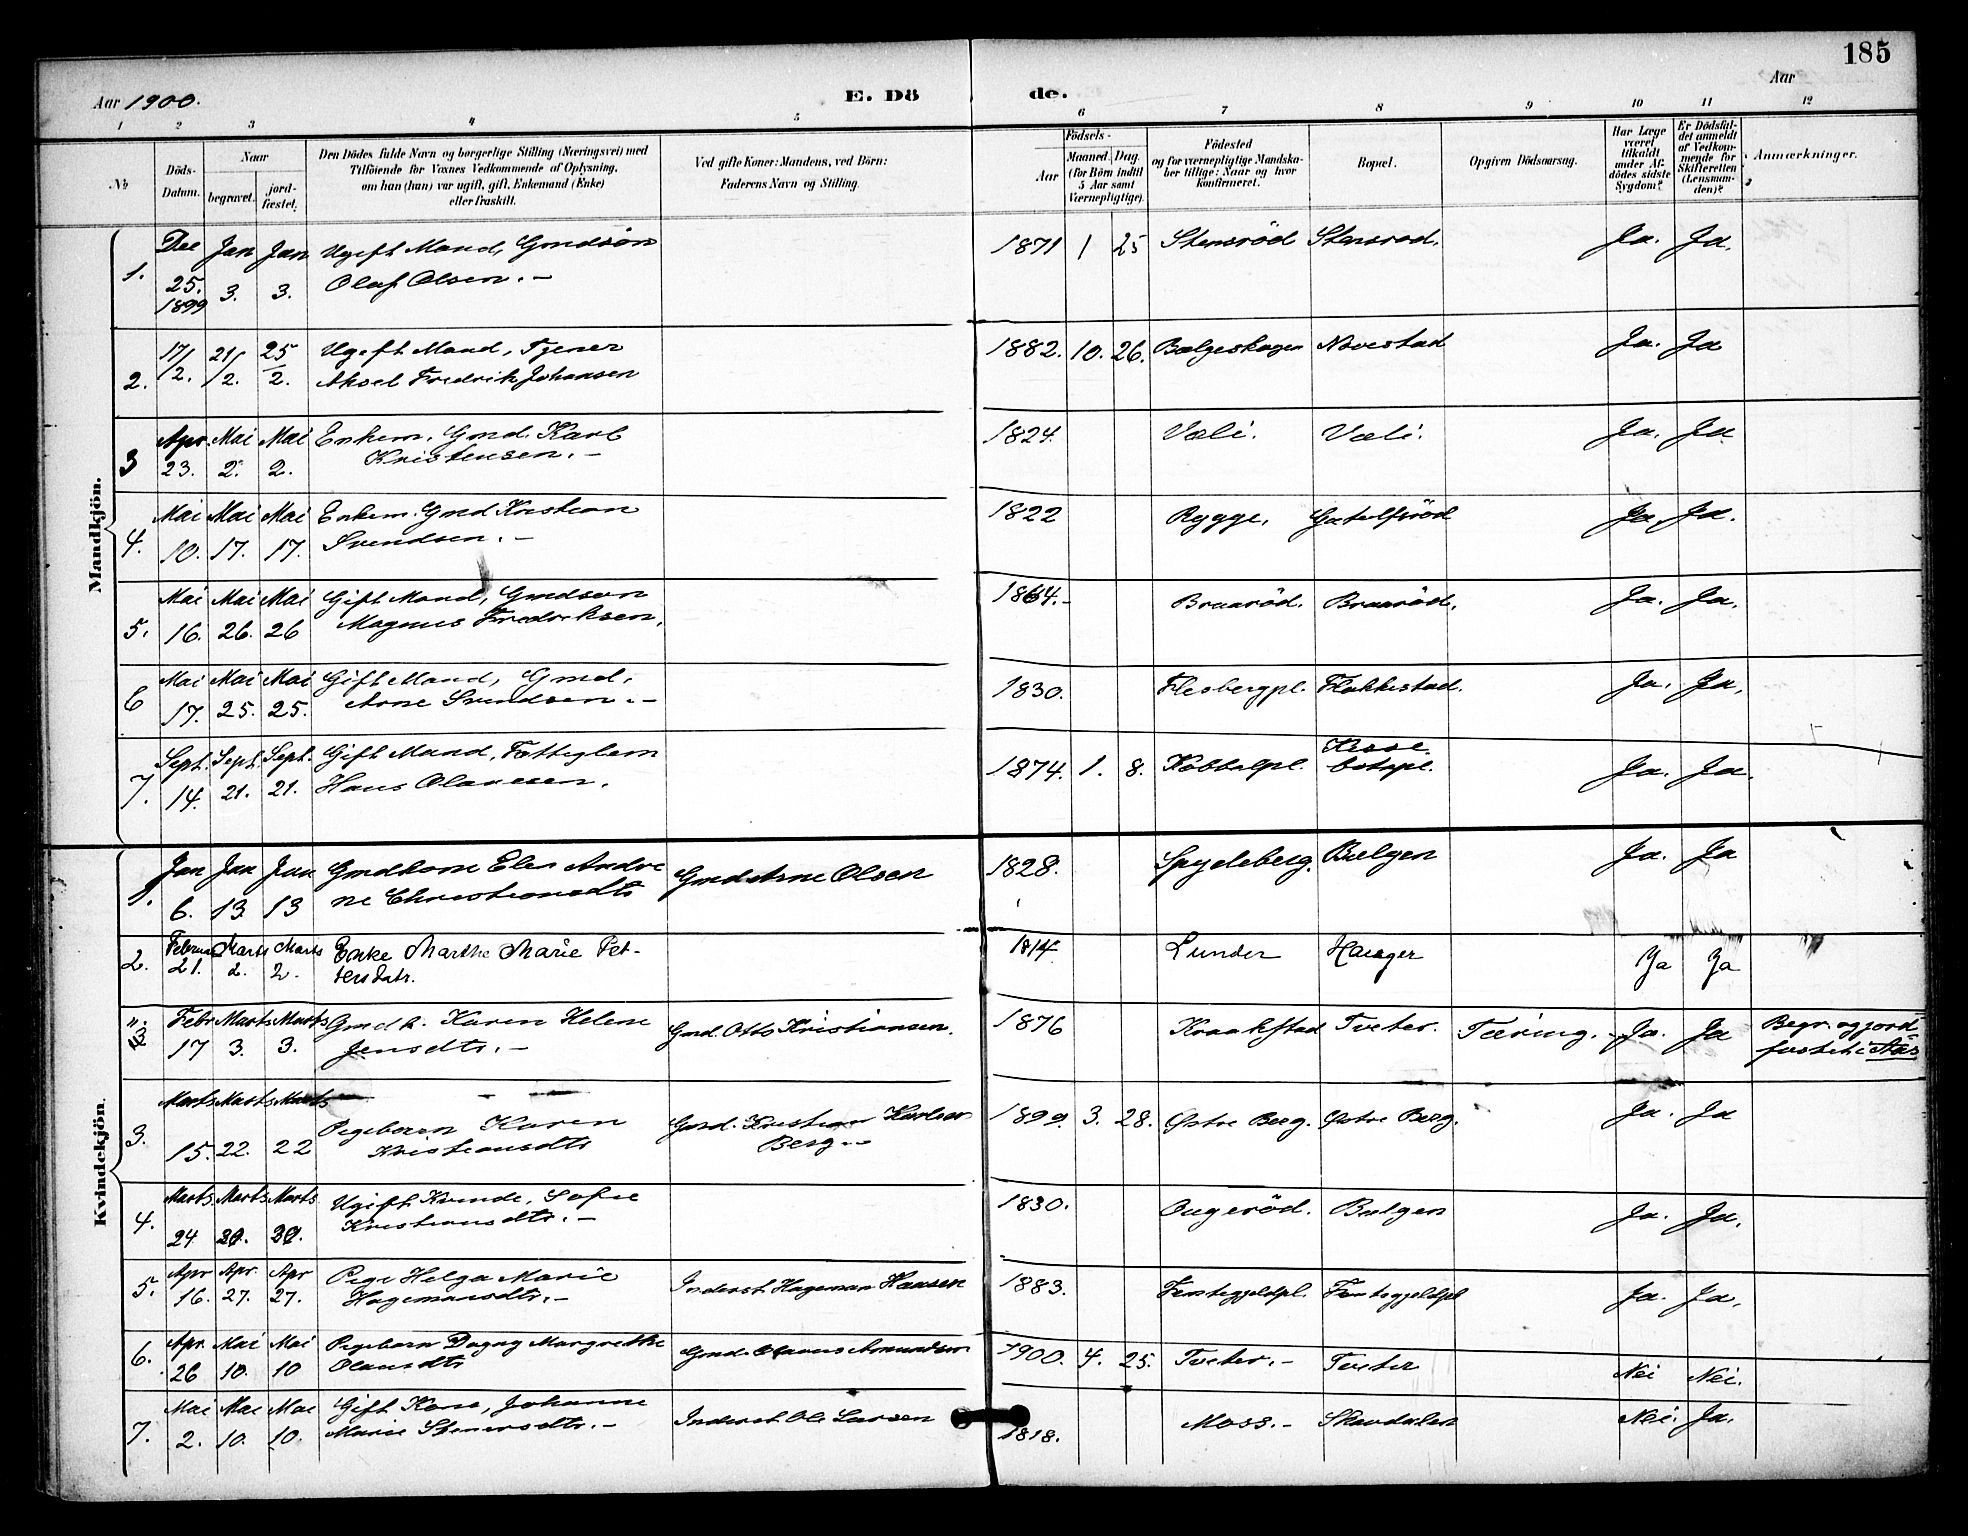 185
Aar 1900. E. Dö de. Aar
1 2 3 4 5 6 7 8 9 10 11 12
№ Döds-Datum. Naar begravet. jordfæstet. Den Dödes fulde Navn og borgerlige Stilling (Næringsvei) med Tilföiende for Voxnes Vedkommende af Oplysning, om han (hun) var ugift, gift, Enkemand (Enke) eller fraskilt. Ved gifte Koner: Mandens, ved Börn: Faderens Navn og Stilling. Födsels- Aar Maaned. Dag. (for Börn indtil 5 Aar samt Værnepligtige). Födested og for værnepligtige Mandskaber tillige: Naar og hvor konfirmeret. Bopæl. Opgiven Dödsaarsag. Har Læge været tilkaldt under Afdödes sidste Sygdom? Er Dödsfaldet anmeldt af Vedkommende for Skifteretten (Lensmanden)? Anmærkninger.
Mandkjön.
1. Dec 25. 1899 Jan 3. Jan 3. Ugift Mand, Gmdsön Olaf Olsen. – 1871 1 25 Stensröd Stensrod. Ja. Ja.
2. 17/2. 21/2. 25/2. Ugift Mand, Tjener Aksel Fredrik Johansen 1882. 10. 26. Bælgeskogen Novestad Ja. Ja
3 Apr. 23. Mai 2. Mai 2. Enkem. Gmd. Karl Kristensen. – 1824. Væli. Væli. Ja. Ja
4. Mai 10. Mai 17. Mai 17. Enkem. Gmd Kristian Svendsen. – 1822 Rygge. Ja. Ja.
5. Mai 16. Mai 26. Mai 26 Gift Mand, Gmdsøn Magnus Fredriksen. 1864. – Braaröd. Braaröd. Ja. Ja.
6 Mai 17. Mai 25. Mai 25. Gift Mand, Gmd. Arne Svendsen. – 1830. Flesbergpl. Flakkestad. Ja. Ja.
7. Sept. 14. Sept. 21. Sept. 21. Gift Mand, Fattiglem Hans Olavesen. 1874. 1. 8. Kobbelpl. Ja. Ja.
Kvindekjön.
1. Jan 6. Jan 13. Jan 13 Gmdkone Elen Andrene Christiansdtr Gmd Arne Olsen 1828. Spydeberg. Bælgen Ja. Ja
2. Februar 21. Marts 2. Marts 2. Enke Marthe Marie Pettersdatr. 1814. Lunder Haager Ja Ja
3 Febr 17 Marts 3. Marts 3. Gmdk. Karen Helene Jensdtr. – Gmd. Otto Kristiansen. 1876 Kraakstad Tveter. Tæring. – Ja. Ja Begr. og jordfæstet i Aas
3. Marts 15. Marts 22. Marts 22 Pigebarn Karen Kristiansdtr Gmd. Kristian Karlsen Berg. – 1899. 3. 28. Østre Berg. Østre Berg. Ja. Ja
4. Marts 24 Marts Marts Ugift Kvinde, Sofie Kristiansdtr. – 1830. Augeröd. Bælgen Ja. Ja.
5. Apr 16. Apr. 27. Apr 27. Pige Helga Marie Hagemansdtr. – Inderst Hageman Hansen 1883. Ja. Ja.
6. Apr. 26 Mai 10. Mai 10 Pigebarn Dagny Margrethe Olausdtr Gmd. Olaus Amundsen 1900. 4. 25. Tveter. – Tveter Nei Nei.
7. Mai 2. Mai 10. Mai 10. Gift Kone, Johanne Marie Stenersdtr. – Inderst Ole Larsen 1818. Moss. – Skavdalen Nei. Ja.